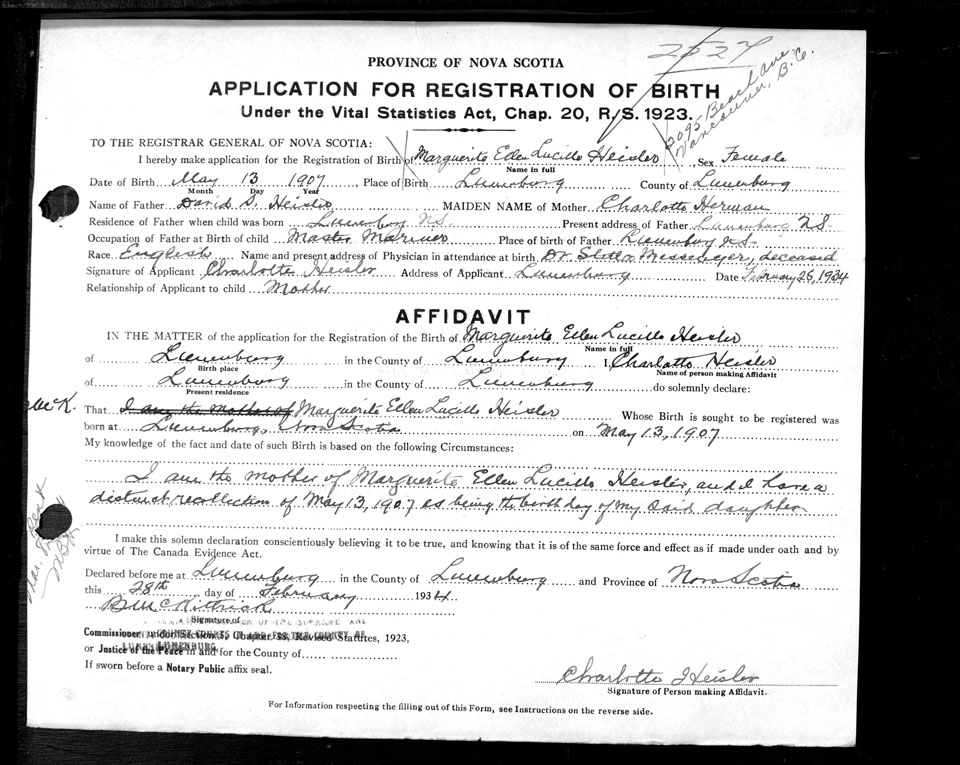 2527
PROVINCE OF NOVA SCOTIA
APPLICATION FOR REGISTRATION OF BIRTH
Under the Vital Statistics Act, Chap. 20, R.S. 1923.
2095 Beach Ave
Vancouver, B.C.
TO THE REGISTRAR GENERAL OF NOVA SCOTIA:
I hereby make application for the Registration of Birth of Marguerite Ellen Lucille Heisler, Sex Female
Name in full
Date of Birth May 13 1907, Place of Birth Lunenburg County of Lunenburg
Month Day Year
Name of Father David S. Heisler MAIDEN NAME of Mother Charlotte Herman
Residence of Father when child was born Lunenburg N.S. Present address of Father Lunenburg N.S.
Occupation of Father at Birth of child Master Mariner Place of birth of Father Lunenburg N.S.
Race English Name and present address of Physician in attendance at birth Dr. Messenger, deceased
Signature of Applicant Charlotte Heisler Address of Applicant Lunenburg Date February 26, 1934
Relationship of Applicant to child Mother
AFFIDAVIT
IN THE MATTER of the application for the Registration of the Birth of Marguerite Ellen Lucille Heisler
Name in full
of Lunenburg in the County of Lunenburg I, Charlotte Heisler
Birth place Name of person making Affidavit
of Lunenburg in the County of Lunenburg do solemnly declare:
Present residence
McK.
That I am the mother of Marguerite Ellen Lucille Heisler Whose Birth is sought to be registered was
born at Lunenburg, Nova Scotia on May 13, 1907
My knowledge of the fact and date of such Birth is based on the following Circumstances:
I am the mother of Marguerite Ellen Lucille Heisler, and I have a
distinct recollection of May 13, 1907 as being the birthday of my said daughter
I make this solemn declaration conscientiously believing it to be true, and knowing that it is of the same force and effect as if made under oath and by
virtue of The Canada Evidence Act.
Declared before me at Lunenburg in the County of Lunenburg and Province of Nova Scotia
this 28th day of February 1934
McKittrick
Signature of
OF THE SUPREME AND
COUNTY COURTS IN AND FOR THE COUNTY OF
LUNENBURG
Commissioner under Section 5, Chapter 38, Revised Statutes, 1923,
or Justice of the Peace in and for the County of
If sworn before a Notary Public affix seal.
Charlotte Heisler
Signature of Person making Affidavit.
For Information respecting the filling out of this Form, see Instructions on the reverse side.